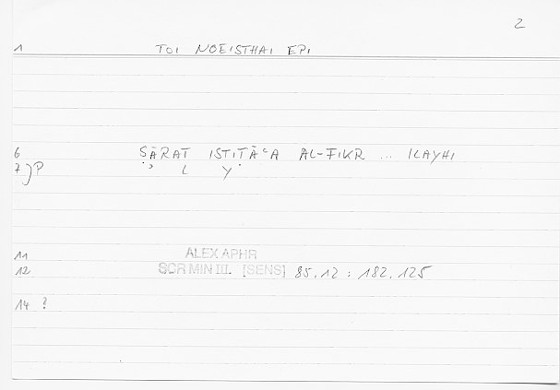 2
1 TOI NOEISTHAI EPI
6 ṢĀRAT ISTIṬĀʿA AL-FIKR ... ILAYHI
7 JP ʾ L Y
11 ALEX APHR
12 SCR MIN III. [SENS] 85.12 : 182.125
14 ?